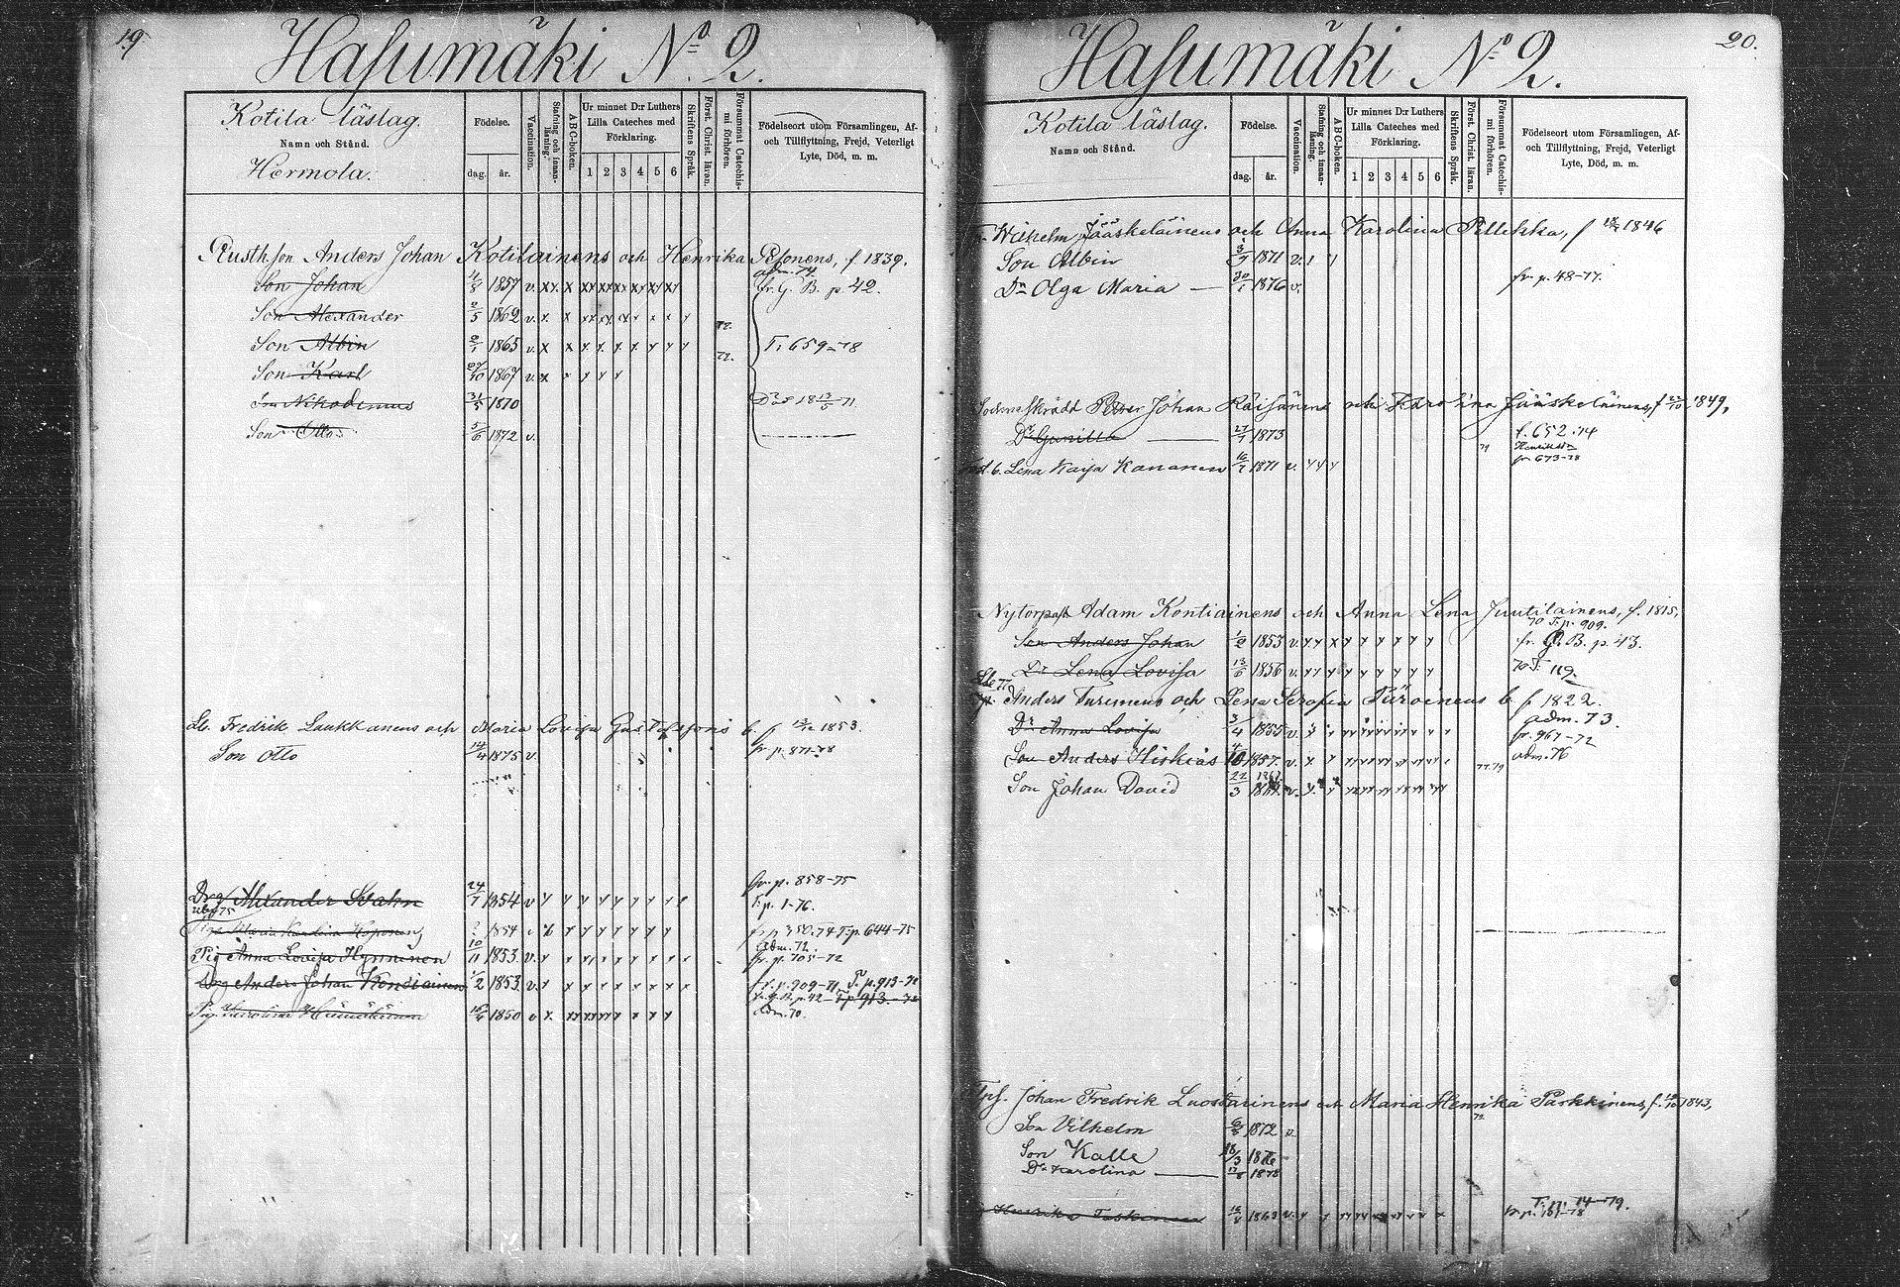 19.
Hasumäki No 2.
Kotila läslag.
Namn och Stånd.
Hermola.
Födelse.
dag.
år.
Vaccination.
Stafning och innan-läsning.
A B C-boken.
Ur minnet D:r Luthers Lilla Cateches med Förklaring.
1 2 3 4 5 6
Skriftens Språk.
Först. Christ. läran.
Försummat Catechis-mi förhören.
Födelseort utom Församlingen, Af- och Tillflyttning, Frejd, Veterligt Lyte, Död, m. m.
Rusth son Anders Johan Kotilainens och Henrika Pelonens, f 1839.
adm. 74
Son Johan 1857 v. fr. G. B. p. 42.
Son Alexander 2/5 1862 v.
72.
Son Albin 2/1 1865 v. T. 659-78
72.
Son Karl 1867 v.
Son Nikodemus 31/5 1870 Död 18 13/5 71
Son Otto 5/6 1872 v.
Lb. Fredrik Laukkanens och Maria Lovisa Gustafssons b. f 1853.
Son Otto 14/4 1875 v. fr p. 871-78
fr. p. 858-75
Drg Alexander Svahn 24/7 1854 v T. p. 1-76.
1854 T. p. 644-75
adm. 72.
Pig Anna Lovisa Hynninen 10/11 1853 v. fr. p. 705-72
Drg Anders Johan Kontiainen 1/2 1853 v. fr. p. 909-71, T. p. 913-72
fr. G. B. p. 42 - T p 913.-72
1850 v adm. 70.
20.
Hasumäki No 2.
Kotila läslag.
Namn och Stånd.
Födelse.
dag.
år.
Vaccination.
Stafning och innan-läsning.
A B C-boken.
Ur minnet D:r Luthers Lilla Cateches med Förklaring.
1 2 3 4 5 6
Skriftens Språk.
Först. Christ. läran.
Försummat Catechis-mi förhören.
Födelseort utom Församlingen, Af- och Tillflyttning, Frejd, Veterligt Lyte, Död, m. m.
Wilhelm Jääskeläinens och Anna Karolina Pellikka, f 1846
Son Albin 1871 v.
Dr Olga Maria 30/1 1876 v. fr. p. 48-77.
Petter Johan Räisänens och Karolina Jääskeläinens, f 1849,
Dr Gunilla 27/7 1873 t. 652.74
79
b. Lena Kaija Kananen 16/7 1871 v. fr 673-78
Nytorpaft Adam Kontiainens och Anna Lena Juutilainens, f. 1815,
70 T. p. 909.
Son Anders Johan 1/2 1853 v. fr. G. B. p. 43.
Dr Lena Lovisa 13/6 1856 v. 70 T. 119.
Anders Turunens och Lena Serafia Tiiroinens b f 1822.
adm. 73.
Dr Anna Lovisa 3/4 1855 v. fr. p. 967-72
Son Anders Hiskias 4/10 1857. v. adm. 76
77.79
Son Johan David 22/3 v.
Tpf. Johan Fredrik Luostarinens och Maria Henrika Parkkinens, f. 1843,
Son Vilhelm 1872 v
Son Kalle 18/3 1876
Dr Karolina 1878
T. p. 14-79.
Henrika Taskinen 1863 v. fr p. 101-78